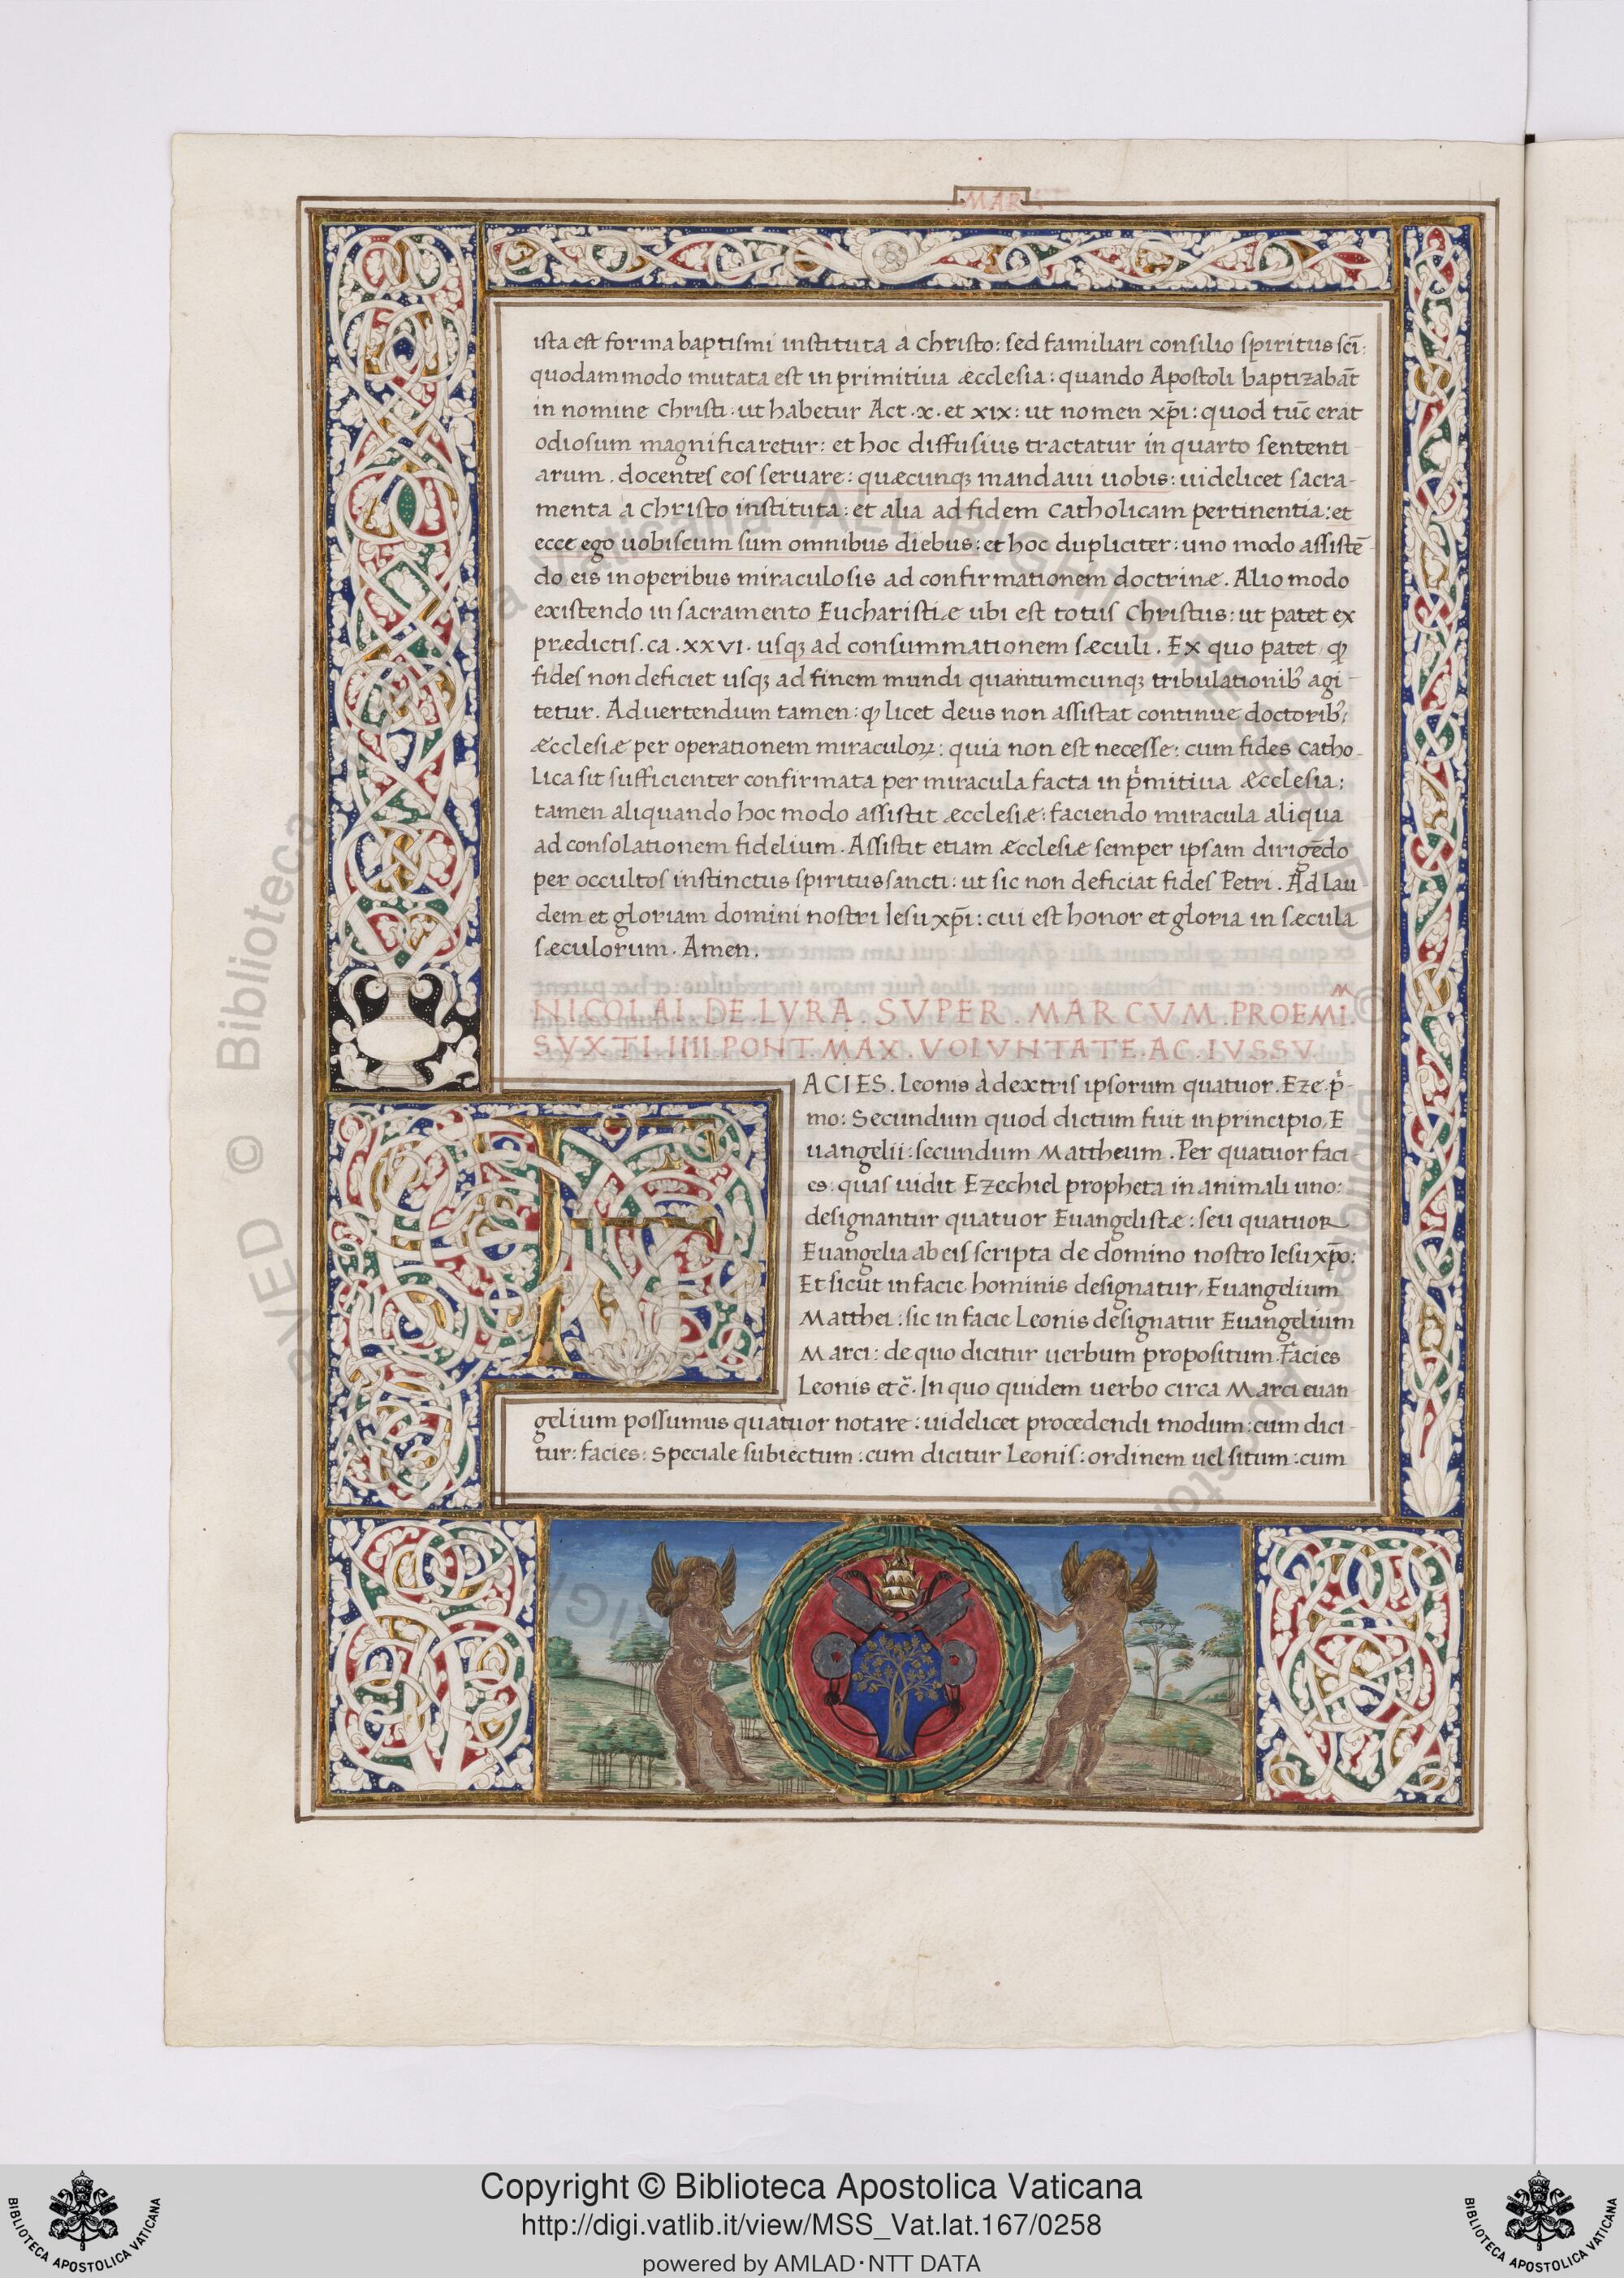 MAR
ista est forma baptismi instituta à Christo: sed familiari consilio spiritus scī:
quodammodo mutata est in primitiua æcclesia: quando Apostoli baptizabāt
in nomine Christi: ut habetur Act .x. et xix: ut nomen xp̄i: quod tūc erat
odiosum magnificaretur: et hoc diffusius tractatur in quarto sententi-
arum. docentes eos seruare: quæcunqꝫ mandaui uobis: uidelicet sacra-
menta à Christo instituta: et alia ad fidem Catholicam pertinentia: et
ecce ego uobiscum sum omnibus diebus: et hoc dupliciter: uno modo assistē-
do eis in operibus miraculosis ad confirmationem doctrinæ. Alio modo
existendo in sacramento Eucharistiæ ubi est totus Christus: ut patet ex
prædictis. ca .xxvi. usqꝫ ad consummationem sæculi. Ex quo patet ꝙ
fides non deficiet usqꝫ ad finem mundi quantumcunqꝫ tribulationibꝰ agi-
tetur. Aduertendum tamen: ꝙ licet deus non assistat continue doctoribꝰ:
æcclesiæ per operationem miraculoꝝ: quia non est necesse: cum fides catho-
lica sit sufficienter confirmata per miracula facta in pⁱmitiua æcclesia:
tamen aliquando hoc modo assistit æcclesiæ: faciendo miracula aliqua
ad consolationem fidelium. Assistit etiam æcclesiæ semper ipsam dirigēdo
per occultos instinctus spiritus sancti: ut sic non deficiat fides Petri. Ad lau
dem et gloriam domini nostri Iesu xp̄i: cui est honor et gloria in sæcula
sæculorum. Amen.
NICOLAI. DE. LYRA. SVPER. MARCVM. PROEMI.M
SYXTI. IIII. PONT. MAX. VOLVNTATE. AC. IVSSV
FACIES. Leonis à dextris ipsorum quatuor. Eze. pⁱ-
mo: Secundum quod dictum fuit in principio, E
uangelii: secundum Mattheum. Per quatuor faci-
es: quas uidit Ezechiel propheta in animali uno:
designantur quatuor Euangelistæ: seu quatuor
Euangelia ab eis scripta de domino nostro Iesu xp̄o:
Et sicut in facie hominis designatur, Euangelium
Matthei: sic in facie Leonis designatur Euangelium
Marci: de quo dicitur uerbum propositum. Facies
Leonis etc̄. In quo quidem uerbo circa Marci euan-
gelium possumus quatuor notare: uidelicet procedendi modum: cum dici-
tur: facies: Speciale subiectum: cum dicitur Leonis: ordinem uel situm: cum
Copyright © Biblioteca Apostolica Vaticana
http://digi.vatlib.it/view/MSS_Vat.lat.167/0258
powered by AMLAD·NTT DATA
BIBLIOTECA APOSTOLICA VATICANA
BIBLIOTECA APOSTOLICA VATICANA